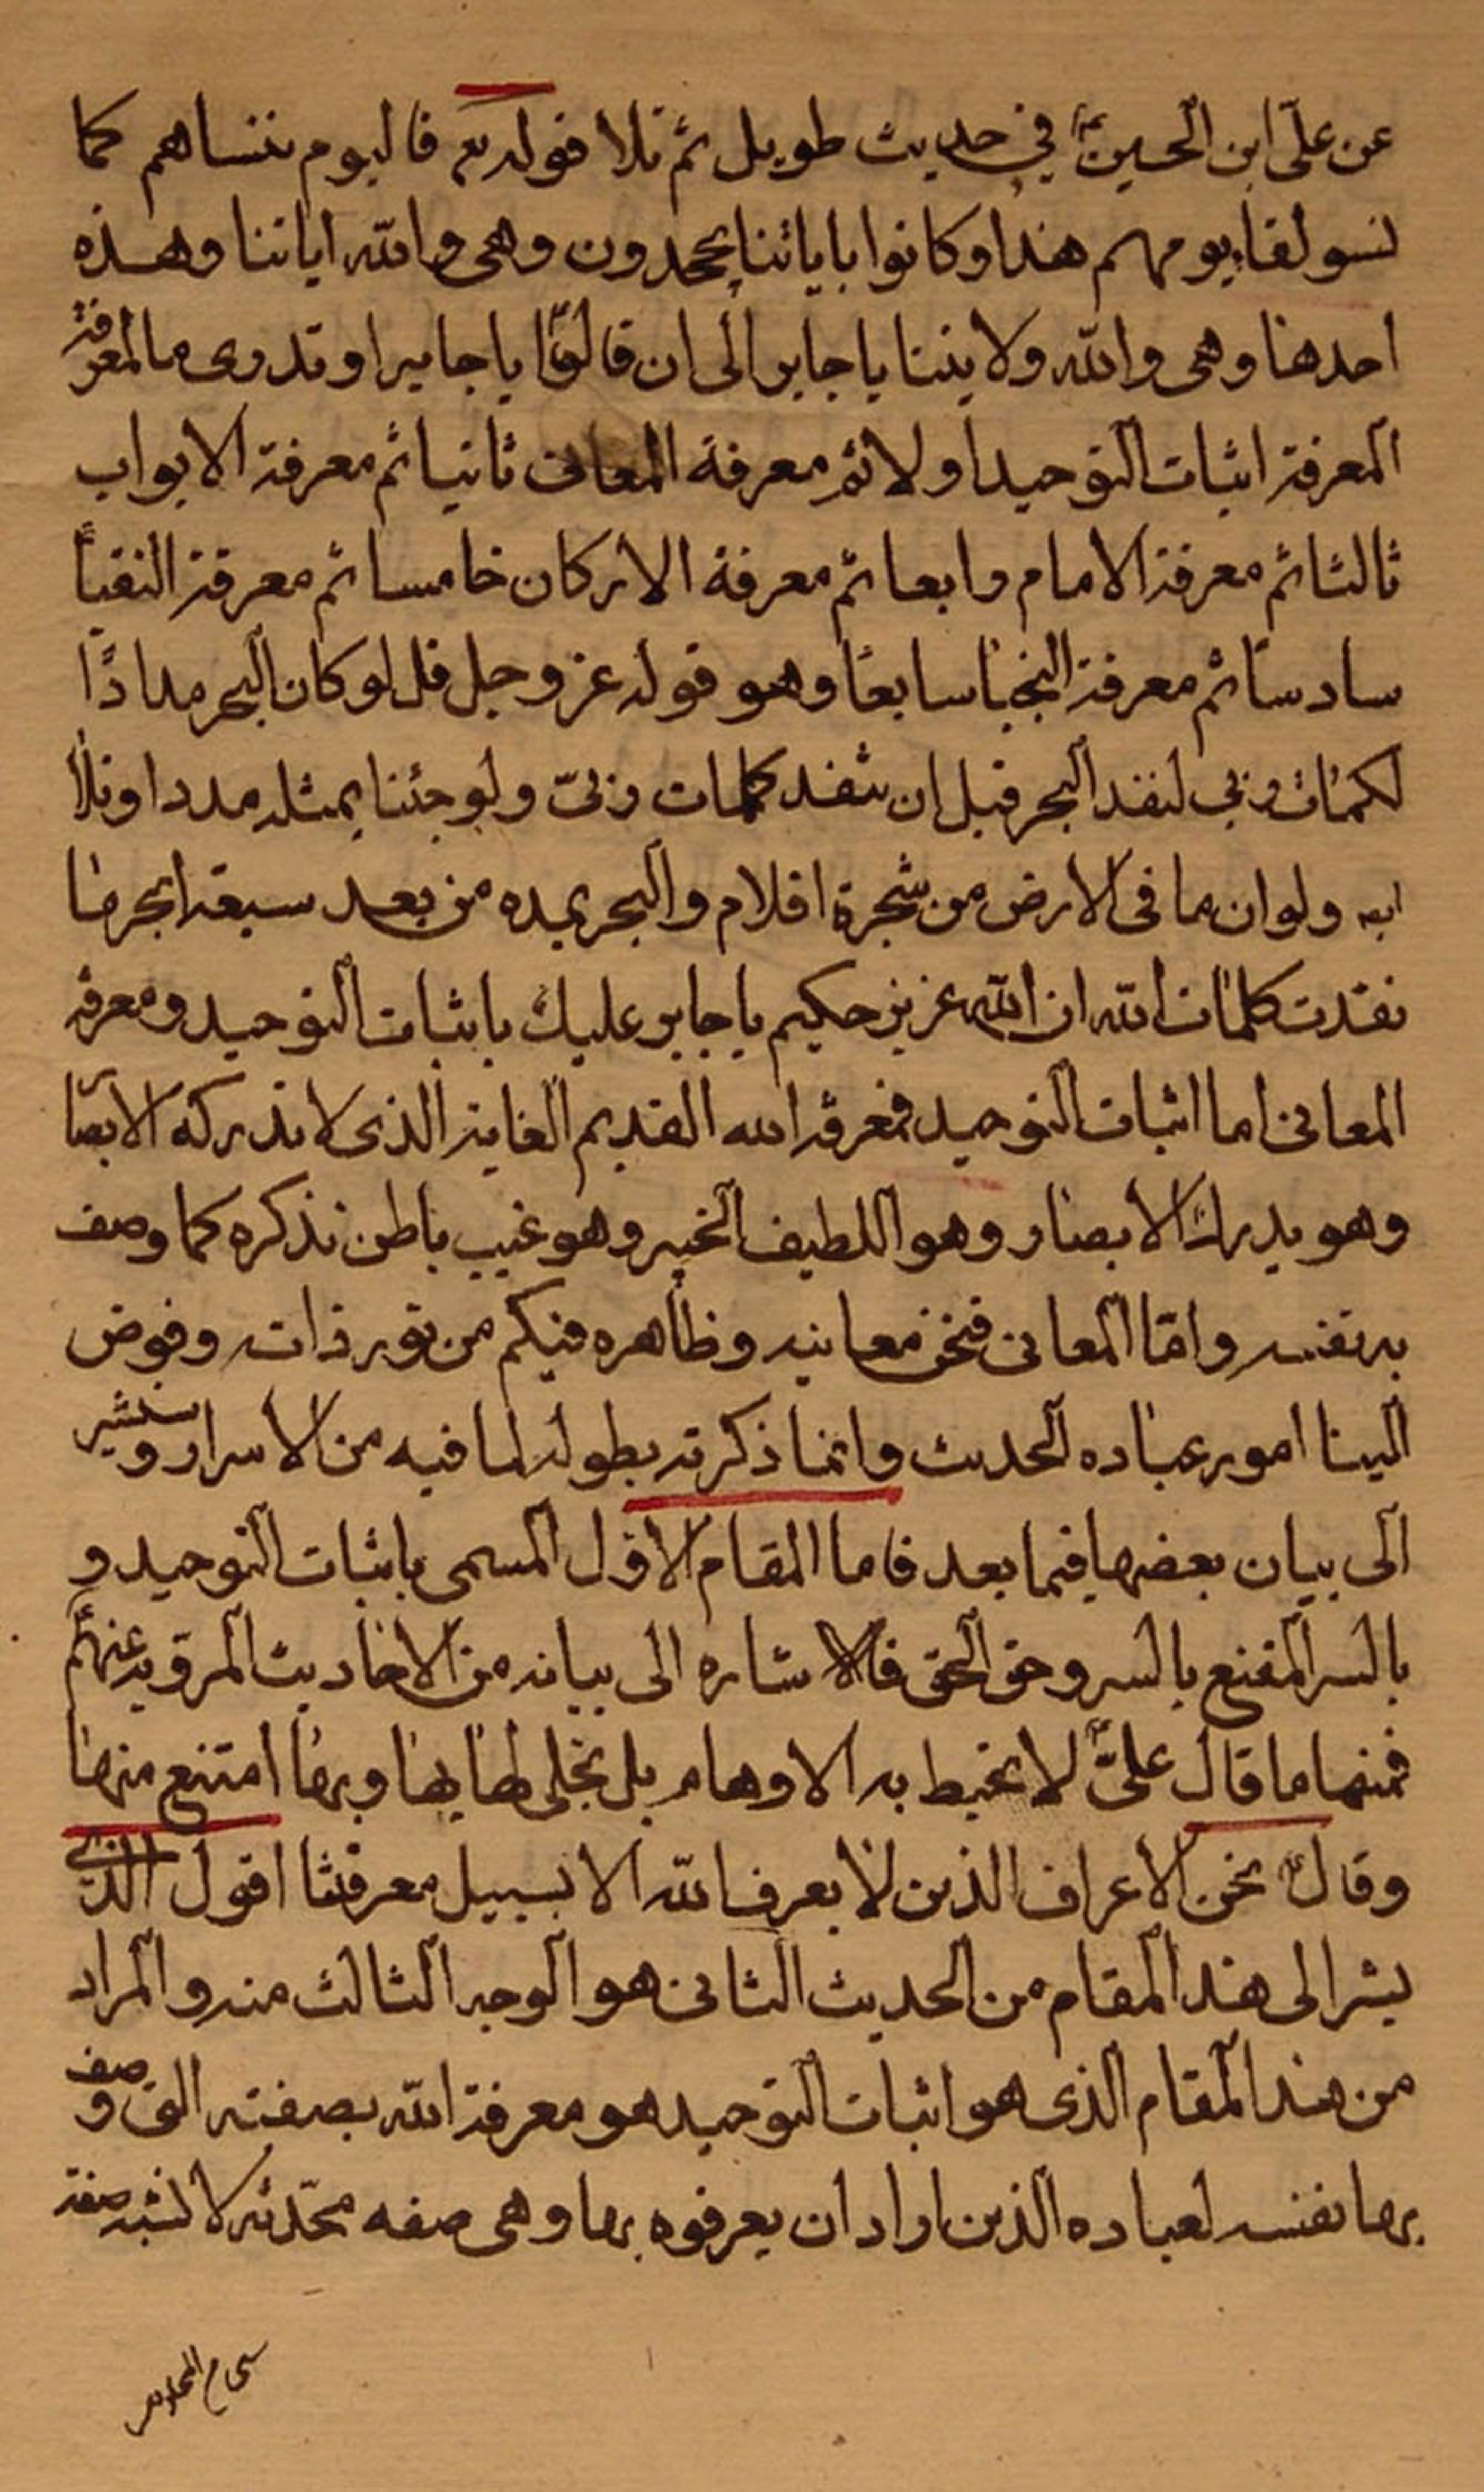 عن علىّ ابن الحسينؑ في حديث طويل ثم تلا قوله تعٰ فاليوم ننساهم كما
نسو لقاء يومهم هذا وكانوا باياتنا يجحدون وهى والله اياتنا وهذه
احدها وهى والله ولايتنا يا جابر الى ان قالؑ يا جابر او تدرى ما المعرفة
المعرفة اثبات التوحيد اولا ثم معرفة المعانى ثانيا ثم معرفة الابواب
ثالثا ثم معرفة الامام رابعا ثم معرفة الاركان خامسا ثم معرفة النقبأ
سادسا ثم معرفة النجبا سابعا وهو قوله عز وجل قل لو كان البحر مدادًا
لكلمات ربي لنفد البحر قبل ان تنفد كلمات ربىّ ولو جئنا بمثله مددا وتلا
ايه ولو ان ما فى الارض من شجرة اقلام والبحر يمده من بعد سبعة ابحر ما
نفدت كلمات الله ان الله عزيز حكيم يا جابر عليك باثبات التوحيد ومعرفة
المعانى اما اثبات التوحيد فمعرفة الله القديم الغاية الذى لا تدركه الابصار
وهو يدرك الابصار وهو اللطيف الخبير وهو غيب باطن تذكره كما وصف
به نفسه وامّا المعانى فنحن معانيه وظاهره فيكم من نور ذاته وفوض
الينا امور عباده الحديث وانما ذكرته بطوله لما فيه من الاسرار وسنشير
الى بيان بعضها فيما بعد فاما المقام الاوّل المسمى باثبات التوحيد و
بالسر المقنع بالسر وحق الحق فالاشاره الى بيانه من الاحاديث المرويه عنهمؑ
فمنها ما قال علىّؑ لا تحيط به الاوهام بل تجلى لها بها وبها امتنع منها
وقالؑ نحن الاعراف الذين لا يعرف الله الا بسبيل معرفتنا اقول الذى
يشر الى هذا المقام من الحديث الثانى هو الوجه الثالث منه والمراد
من هذا المقام الذى هو اثبات التوحيد هو معرفة الله بصفته التى وصف
بها نفسه لعباده الذين اراد ان يعرفوه بها وهى صفه محدثه لا تشبه صفة